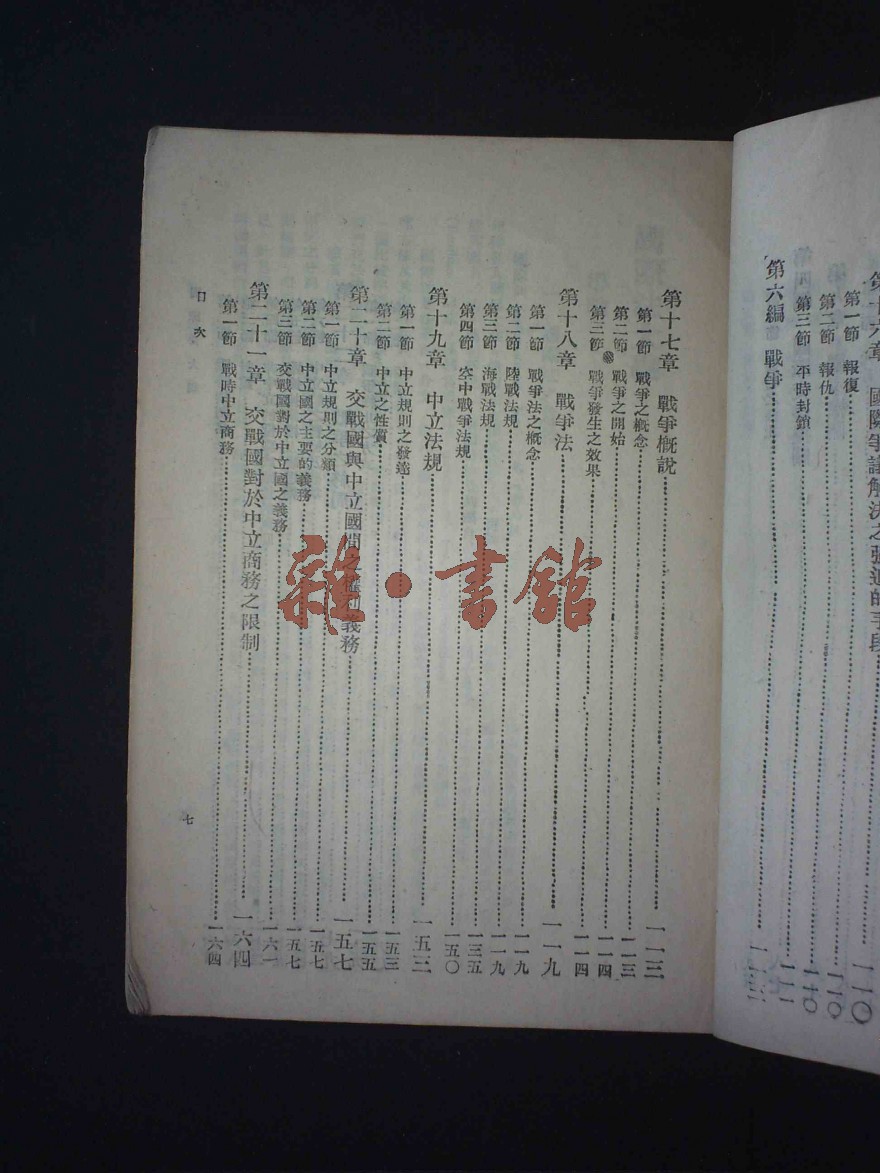 國際爭議解決之强迫的手段
第一節 報復 一一〇
第二節 報仇 一一〇
第三節 平時封鎖
第六編 戰爭
第十七章 戰爭概說 一一三
第一節 戰爭之概念 一一三
第二節 戰爭之開始 一一四
第三節 戰爭發生之效果 一一四
第十八章 戰爭法 一一九
第一節 戰爭法之概念 一一九
第二節 陸戰法規 一一九
第三節 海戰法規 一三五
第四節 空中戰爭法規 一五〇
第十九章 中立法規 一五三
第一節 中立規則之發達 一五三
第二節 中立之性質 一五五
第二十章 交戰國與中立國間之權利義務 一五七
第一節 中立規則之分類 一五七
第二節 中立國之主要的義務 一五七
第三節 交戰國對於中立國之義務 一六一
第二十一章 交戰國對於中立商務之限制 一六四
第一節 戰時中立商務 一六四
目次
七
雜·書館